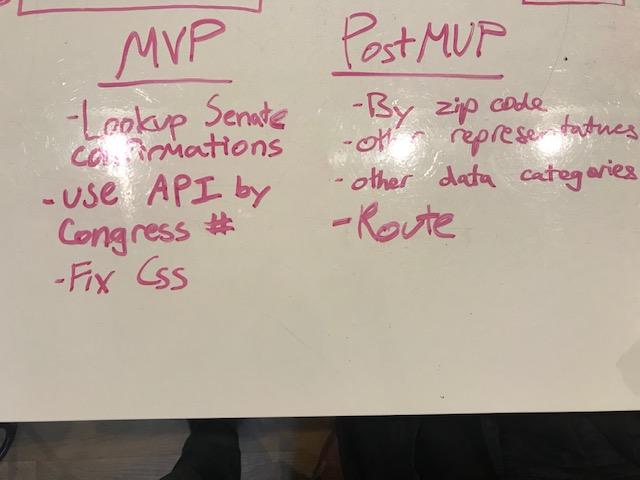 MVP
- Lookup Senate
confirmations
- use API by
Congress #
- Fix Css
Post MVP
- By zip code
- other representatives
- other data categories
- Route